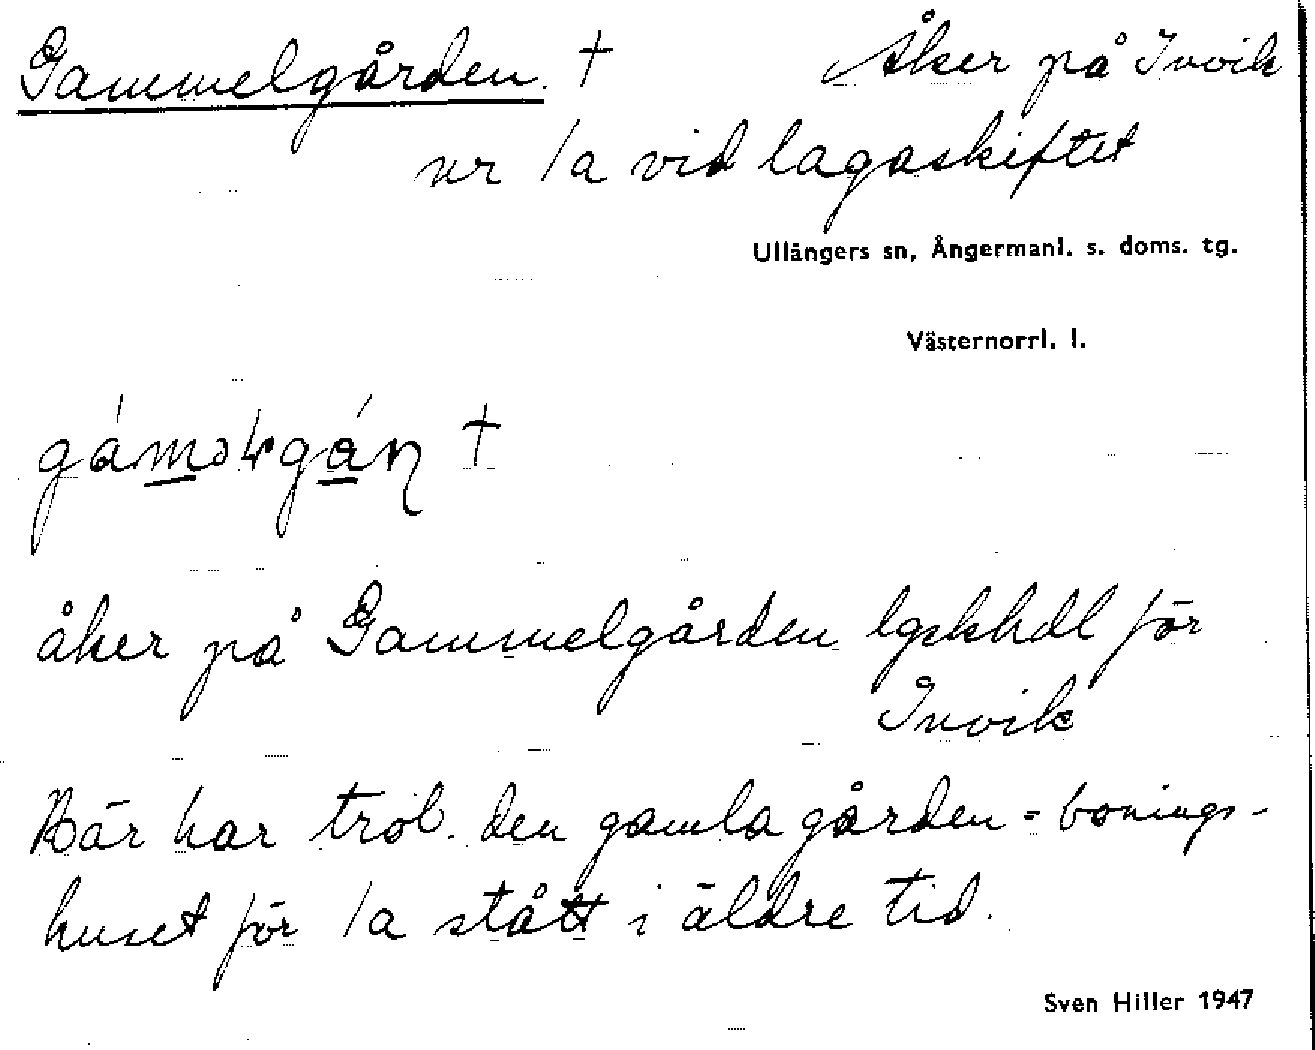 Gammelgården † Åker på Invik
nr 1a vid lagaskiftet
Ullångers sn, Ångermanl. s. doms. tg.
Västernorrl. l.
†
åker på Gammelgården lgskhdl för
Invik
Här har trol. den gamla gården = bonings-
huset för 1a stått i äldre tid.
Sven Hiller 1947